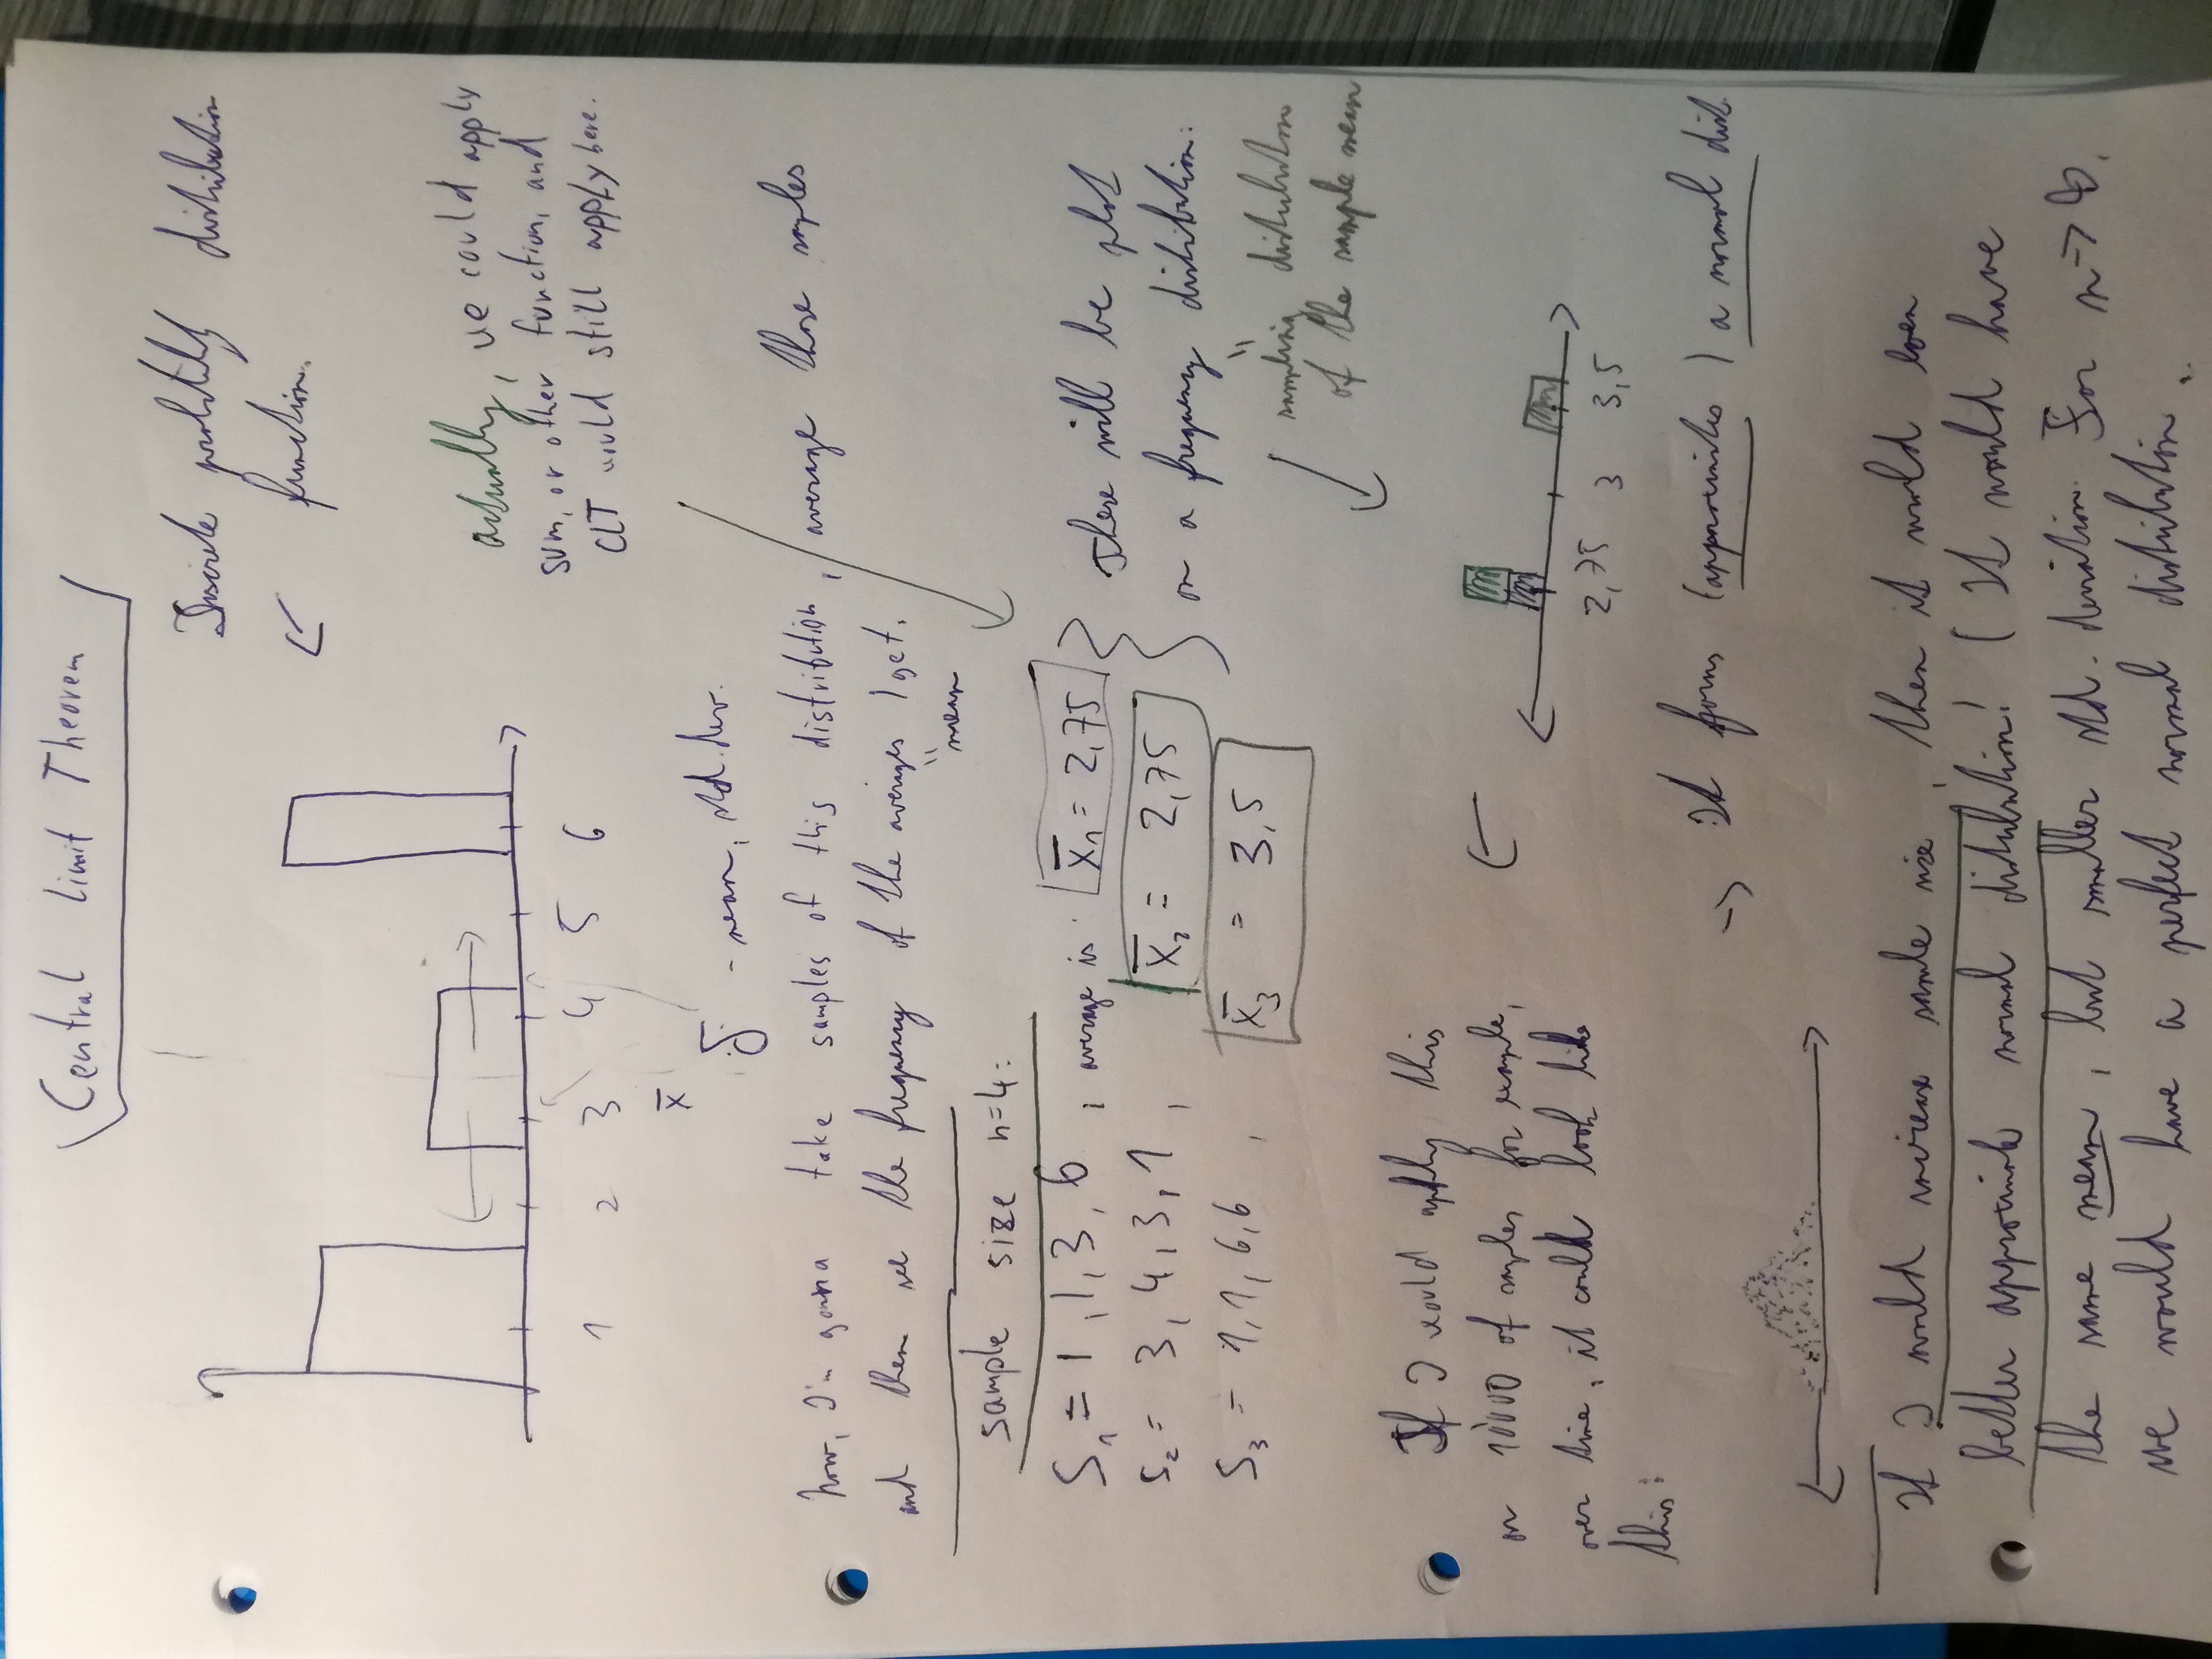 Central Limit Theorem
Discrete probability distribution
function.
1 2 3 4 5 6
actually, we could apply
sum, or other function, and
CLT would still apply here.
x̄
δ - mean, std. dev.
now, I'm gonna take samples of this distribution, average those samples
and then see the frequency of the averages I get.
"mean
sample size n=4:
S1 = 1, 1, 3, 6, average is: x̄1 = 2,75
S2 = 3, 4, 3, 1, x̄2 = 2,75
S3 = 1, 1, 6, 6, x̄3 = 3,5
These will be plot
on a frequency distribution:
"sampling distribution
of the sample mean
If I would apply this
on 10000 of samples for example,
over time, it could look like
this:
2,75 3 3,5
-> It forms (approximates) a normal dist.
If I would increase sample size, then it would even
better approximate normal distribution! (It would have
the same mean, but smaller std. deviation. For n->∞,
we would have a perfect normal distribution.